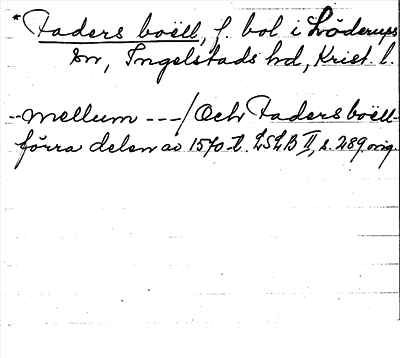 * Faders boëll, f. bol i Löderups
sn, Ingelstads hd, Krist. l.
-- mellum ---/ Och Faders boëll -
förra delen av 1570-t. LSLB II, s. 289 orig.